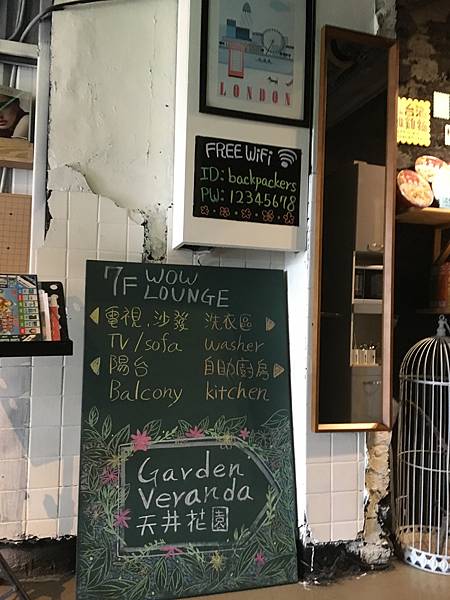 LONDON
FREE WiFi
ID: backpackers
PW: 12345678
7F WOW
LOUNGE
電視.沙發 洗衣區
TV/sofa washer
陽台 自助廚房
Balcony kitchen
Garden
Veranda
天井花園